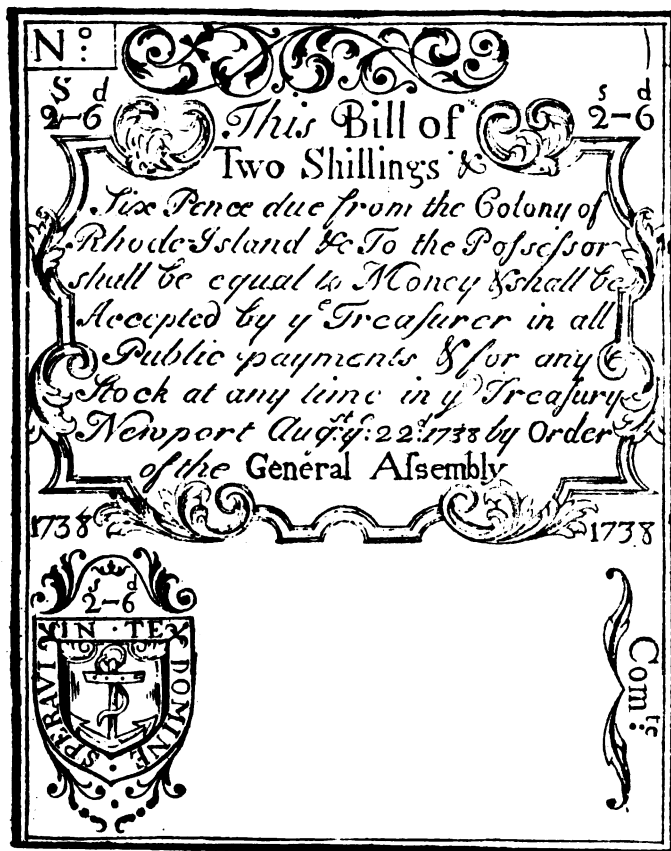 No:
S d
2–6
s d
2–6
This Bill of
Two Shillings &
Six Pence due from the Colony of
Rhode Island &c To the Poſseſsor
shall be equal to Money & shall be
Accepted by yᵉ Treaſurer in all
Public payments & for any
Stock at any time in yᵉ Treaſury
Newport Augˢᵗ: yᵉ: 22ᵈ: 1738 by Order
of the General Aſsembly
1738
1738
s d
2–6
SPERAVI IN · TE DOMINE ·
Comᵗᵉ: